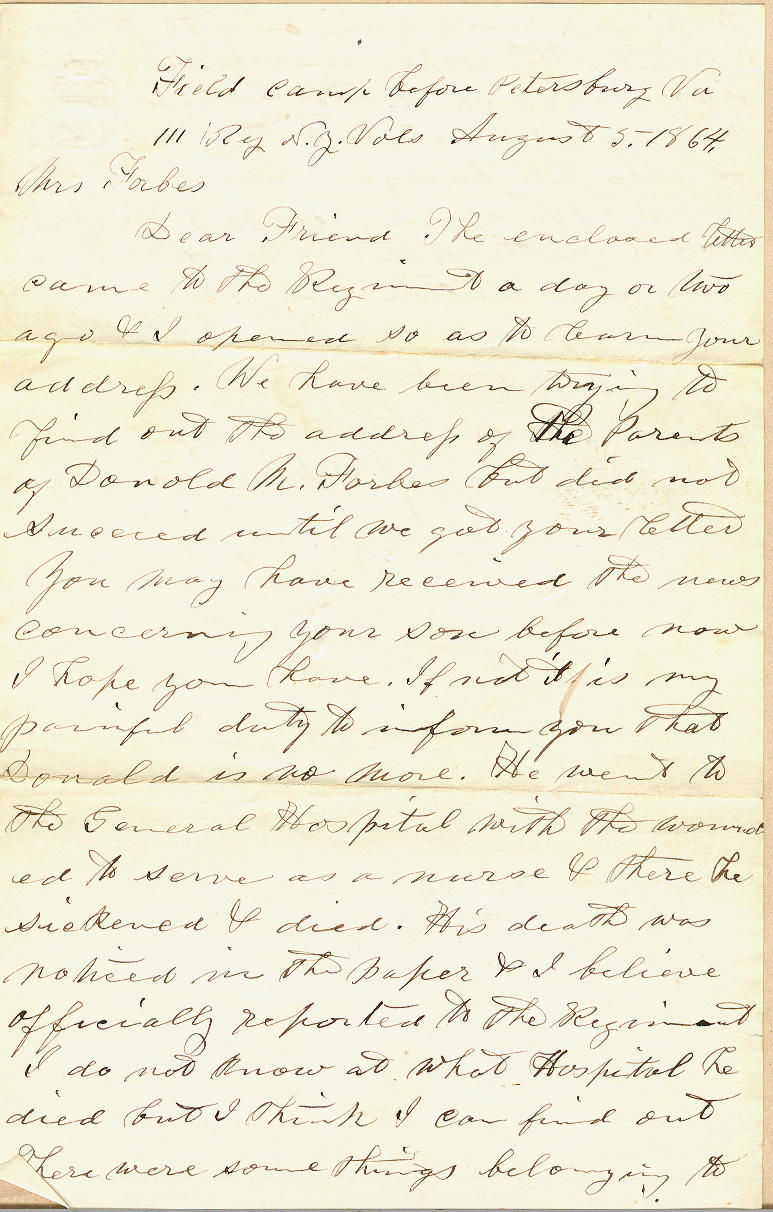 Field camp before Petersburg Va
111 Reg N.Y. Vols August 5. 1864.
Mrs Forbes
Dear Friend The enclosed letter
came to the Regiment a day or two
ago & I opened so as to learn your
address. We have been trying to
find out the address of the Parents
of Donold M. Forbes but did not
succeed until we got your letter
You may have received the news
concerning your son before now
I hope you have. If not it is my
painful duty to inform you that
Donald is no more. He went to
the General Hospital with the wound
ed to serve as a nurse & there he
sickened & died. His death was
noticed in the paper & I believe
officially reported to the Regiment
I do not know at what Hospital he
died but I think I can find out
There were some things belonging to